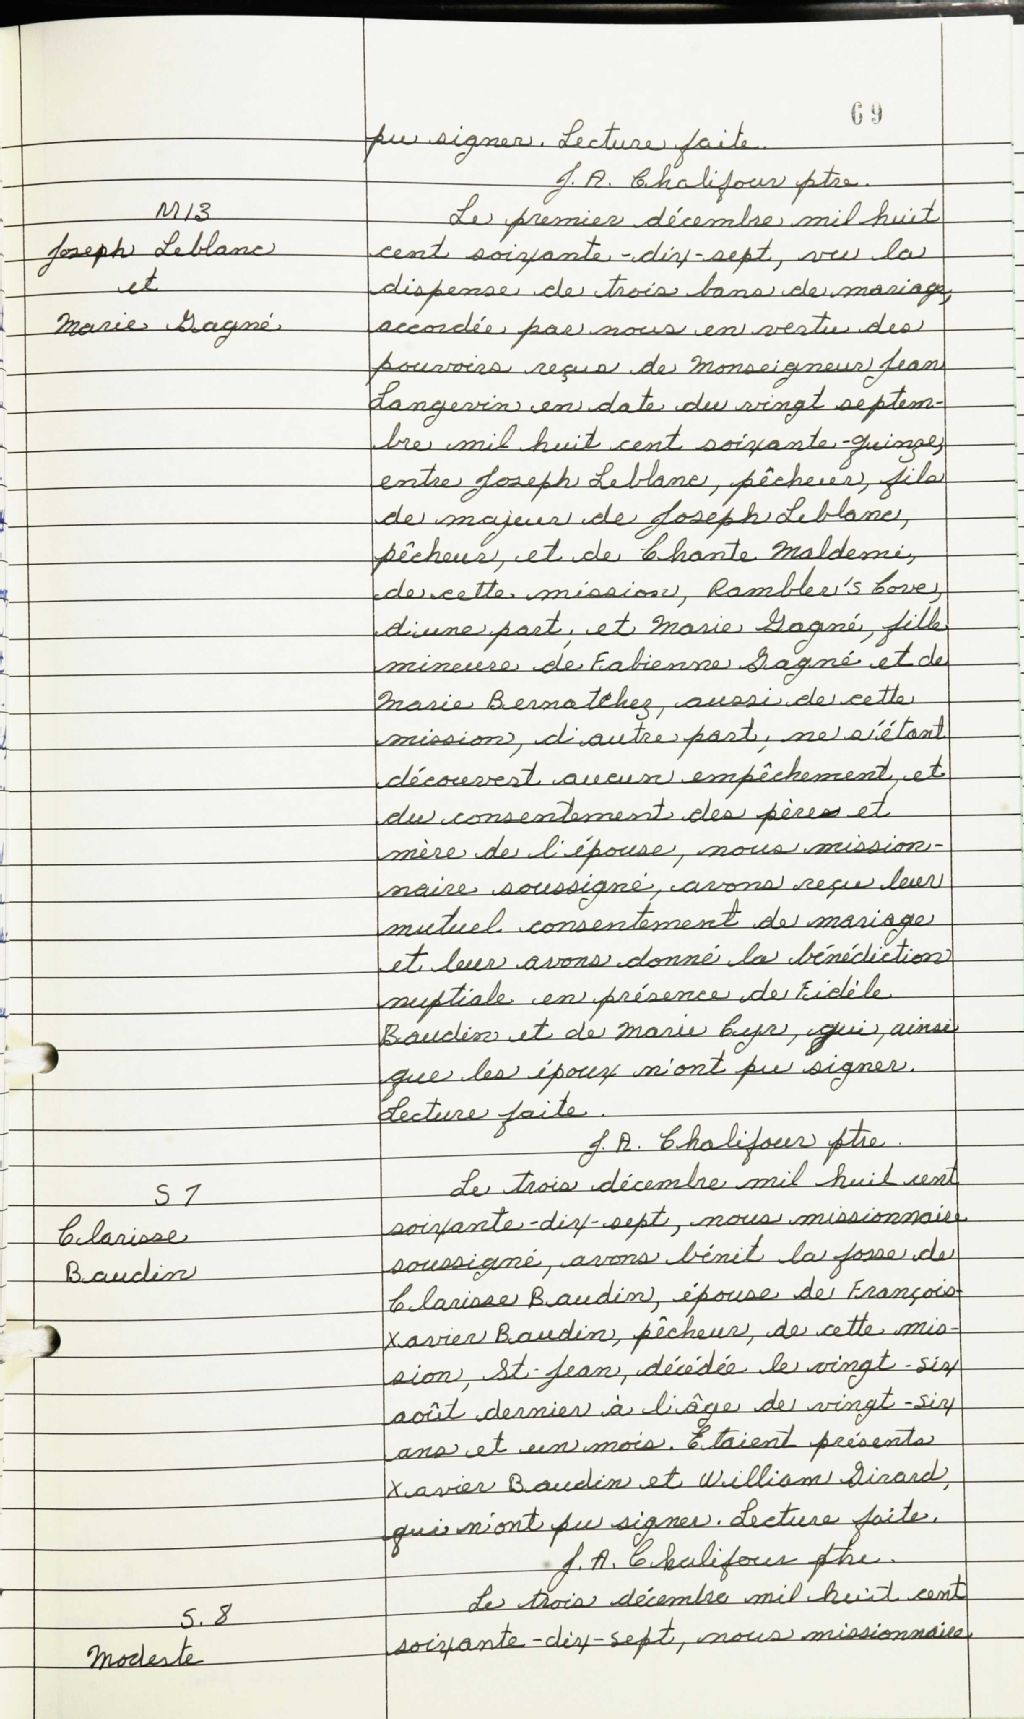 69
pu signer. Lecture faite.
J. A. Chalifour ptre.
M13
Joseph Leblanc
et
Marie Gagné
Le premier décembre mil huit
cent soixante-dix-sept, vu la
dispense de trois bans de mariage,
accordée par nous en vertu des
pouvoirs reçus de Monseigneur Jean
Langevin en date du vingt septem-
bre mil huit cent soixante-quinze,
entre Joseph Leblanc, pêcheur, fils
de majeur de Joseph Leblanc,
pêcheur, et de Chante Maldemi,
de cette mission, Rambler's Cove,
d'une part, et Marie Gagné, fille
mineure de Fabienne Gagné et de
Marie Bernatchez, aussi de cette
mission, d'autre part, ne s'étant
découvert aucun empêchement, et
du consentement des pères et
mère de l'épouse, nous mission-
naire soussigné, avons reçu leur
mutuel consentement de mariage
et leur avons donné la bénédiction
nuptiale en présence de Fidèle
Baudin et de Marie Cyr, qui, ainsi
que les époux n'ont pu signer.
Lecture faite.
J. A. Chalifour ptre.
S7
Clarisse
Baudin
Le trois décembre mil huit cent
soixante-dix-sept, nous missionnaire
soussigné, avons bénit la fosse de
Clarisse Baudin, épouse de François-
Xavier Baudin, pêcheur, de cette mis-
sion, St-Jean, décédée le vingt-six
août dernier à l'âge de vingt-six
ans et un mois. Etaient présents
Xavier Baudin et William Girard,
qui n'ont pu signer. Lecture faite.
J. A. Chalifour ptre.
S. 8
Modeste
Le trois décembre mil huit cent
soixante-dix-sept, nous missionnaire